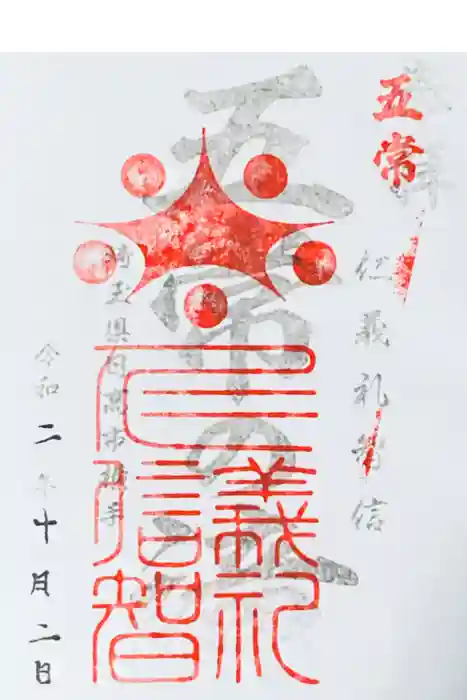 五常
仁義礼智信
五常の
仁
義礼
信智
埼玉県日高市横手
令和二年十月二日